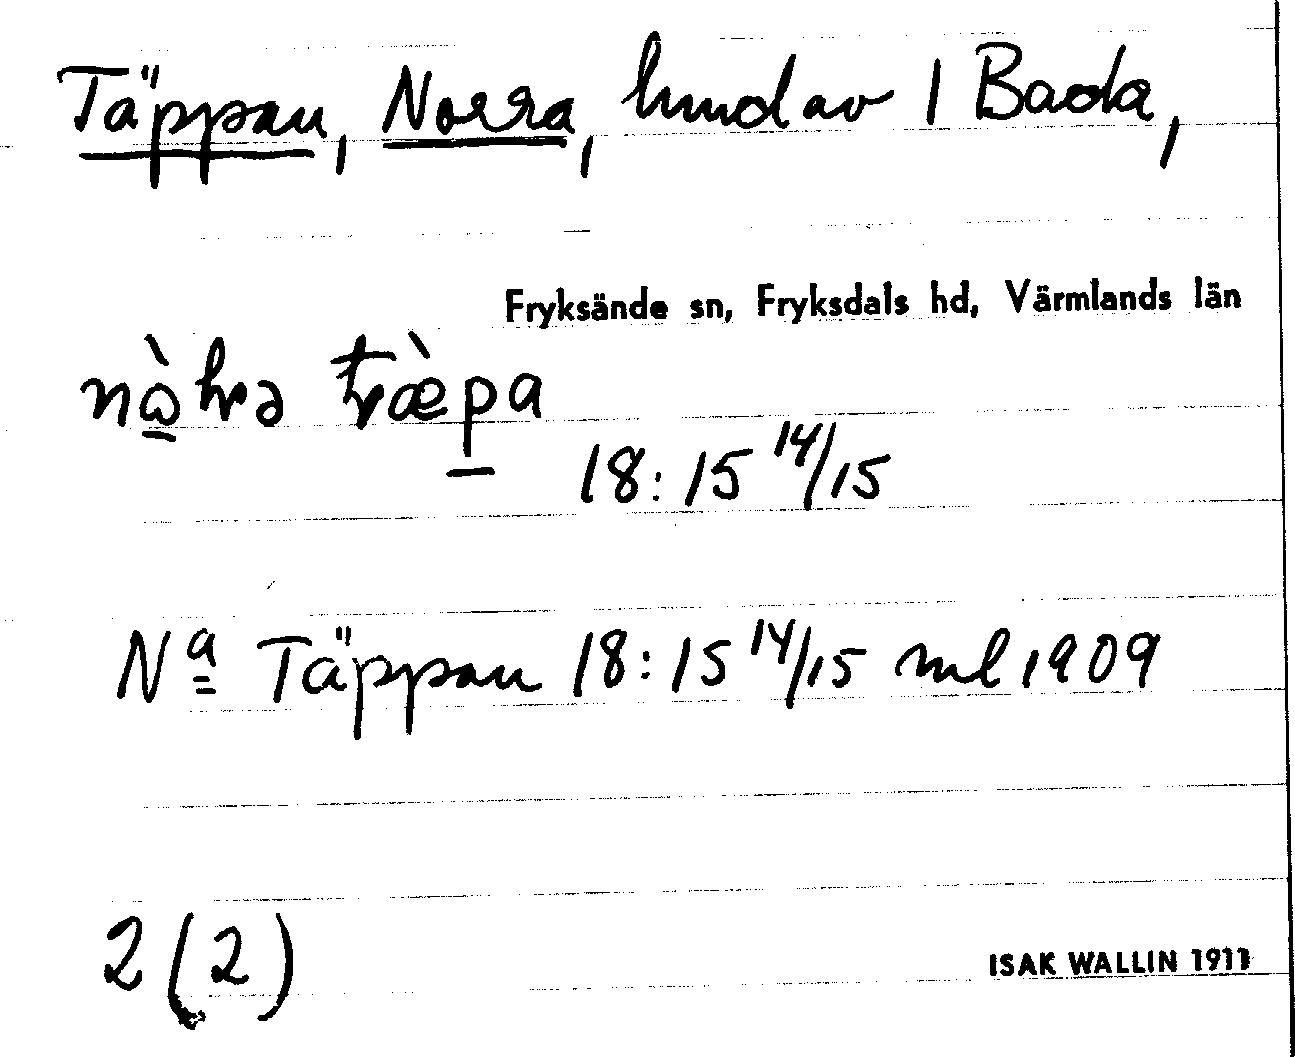 Täppan, Norra, hmd av 1 Bada,
Fryksände sn, Fryksdals hd, Värmlands län
18:15 14/15
Nª Täppan 18:15 14/15 ml 1909
2 (2)
ISAK WALLIN 1911